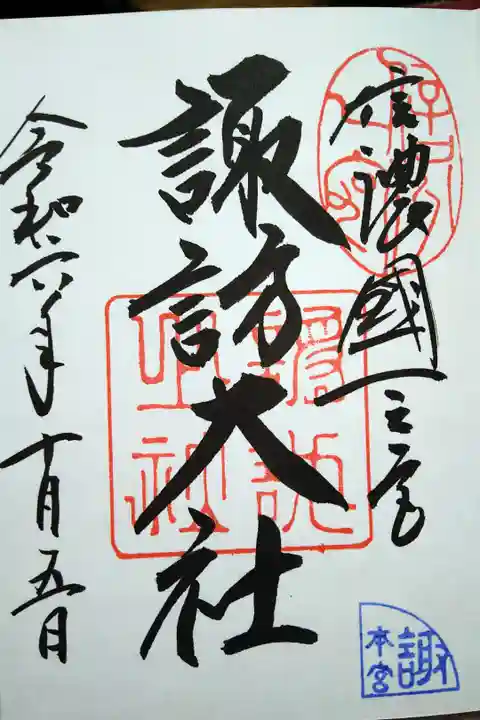 信濃國一之宮
諏訪大社
令和六年十月五日
諏
本宮